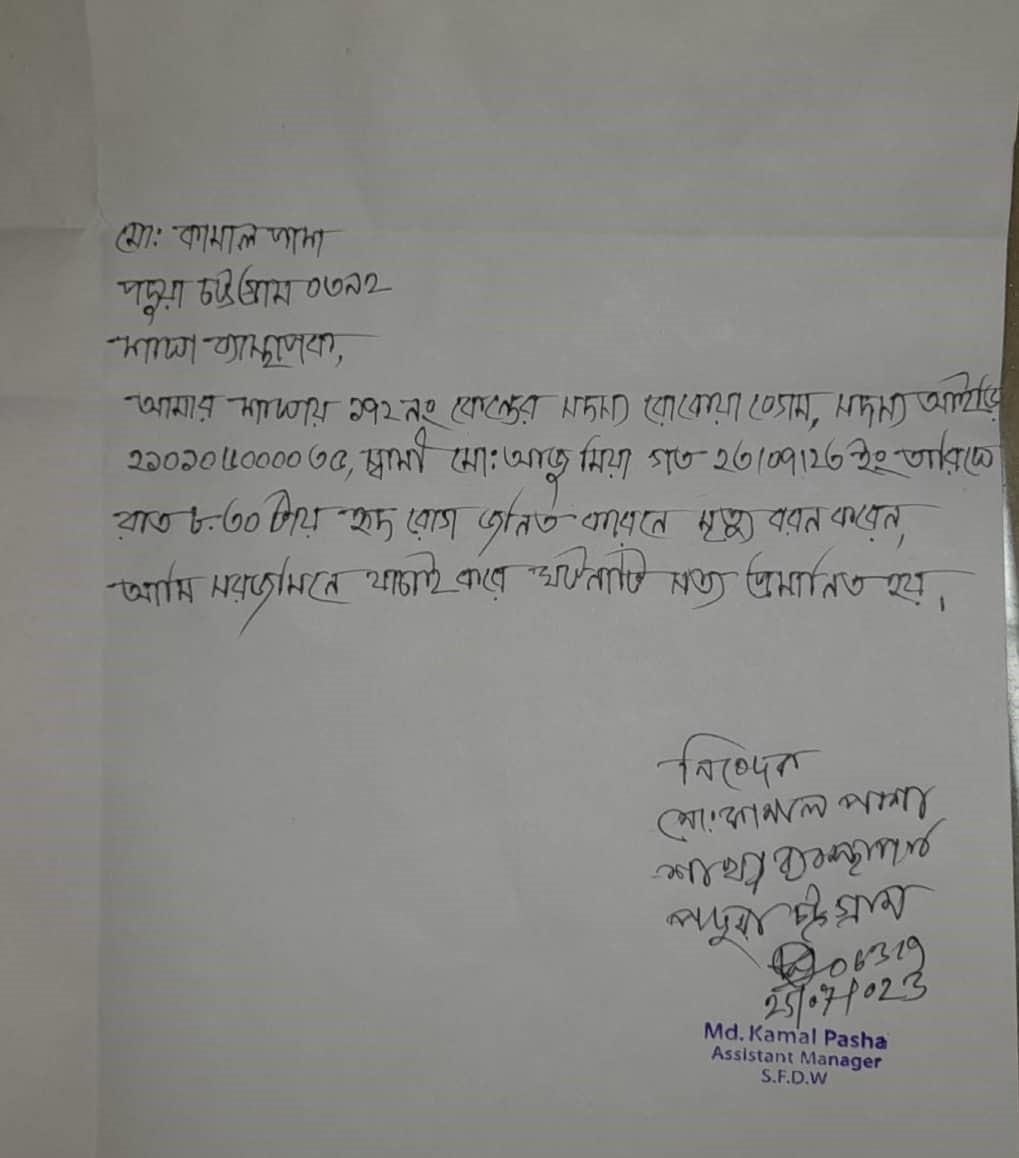 মো: কামাল পাশা
পদুয়া চট্টগ্রাম ০৩৯২
শাখা ব্যাস্থাপক,
আমার শাখায় ১৭২ নং কেন্দ্রের সদস্য রোকেয়া বেগম, সদস্য আইডি
২১০১০৫০০০০৩৫, স্বামী মো: আজু মিয়া গত ২৩/০৭/২৩ ইং তারিখে
রাত ৮.৩০ টায় হৃদ রোগ জনিত কারনে মৃত্যু বরন করেন,
আমি সরজমিনে যাচাই করে ঘটনাটি সত্য প্রমানিত হয়।
নিবেদক
মো: কামাল পাশা
শাখা ব্যবস্থাপক
পদুয়া চট্টগ্রাম
06319
25/07/023
Md. Kamal Pasha
Assistant Manager
S.F.D.W